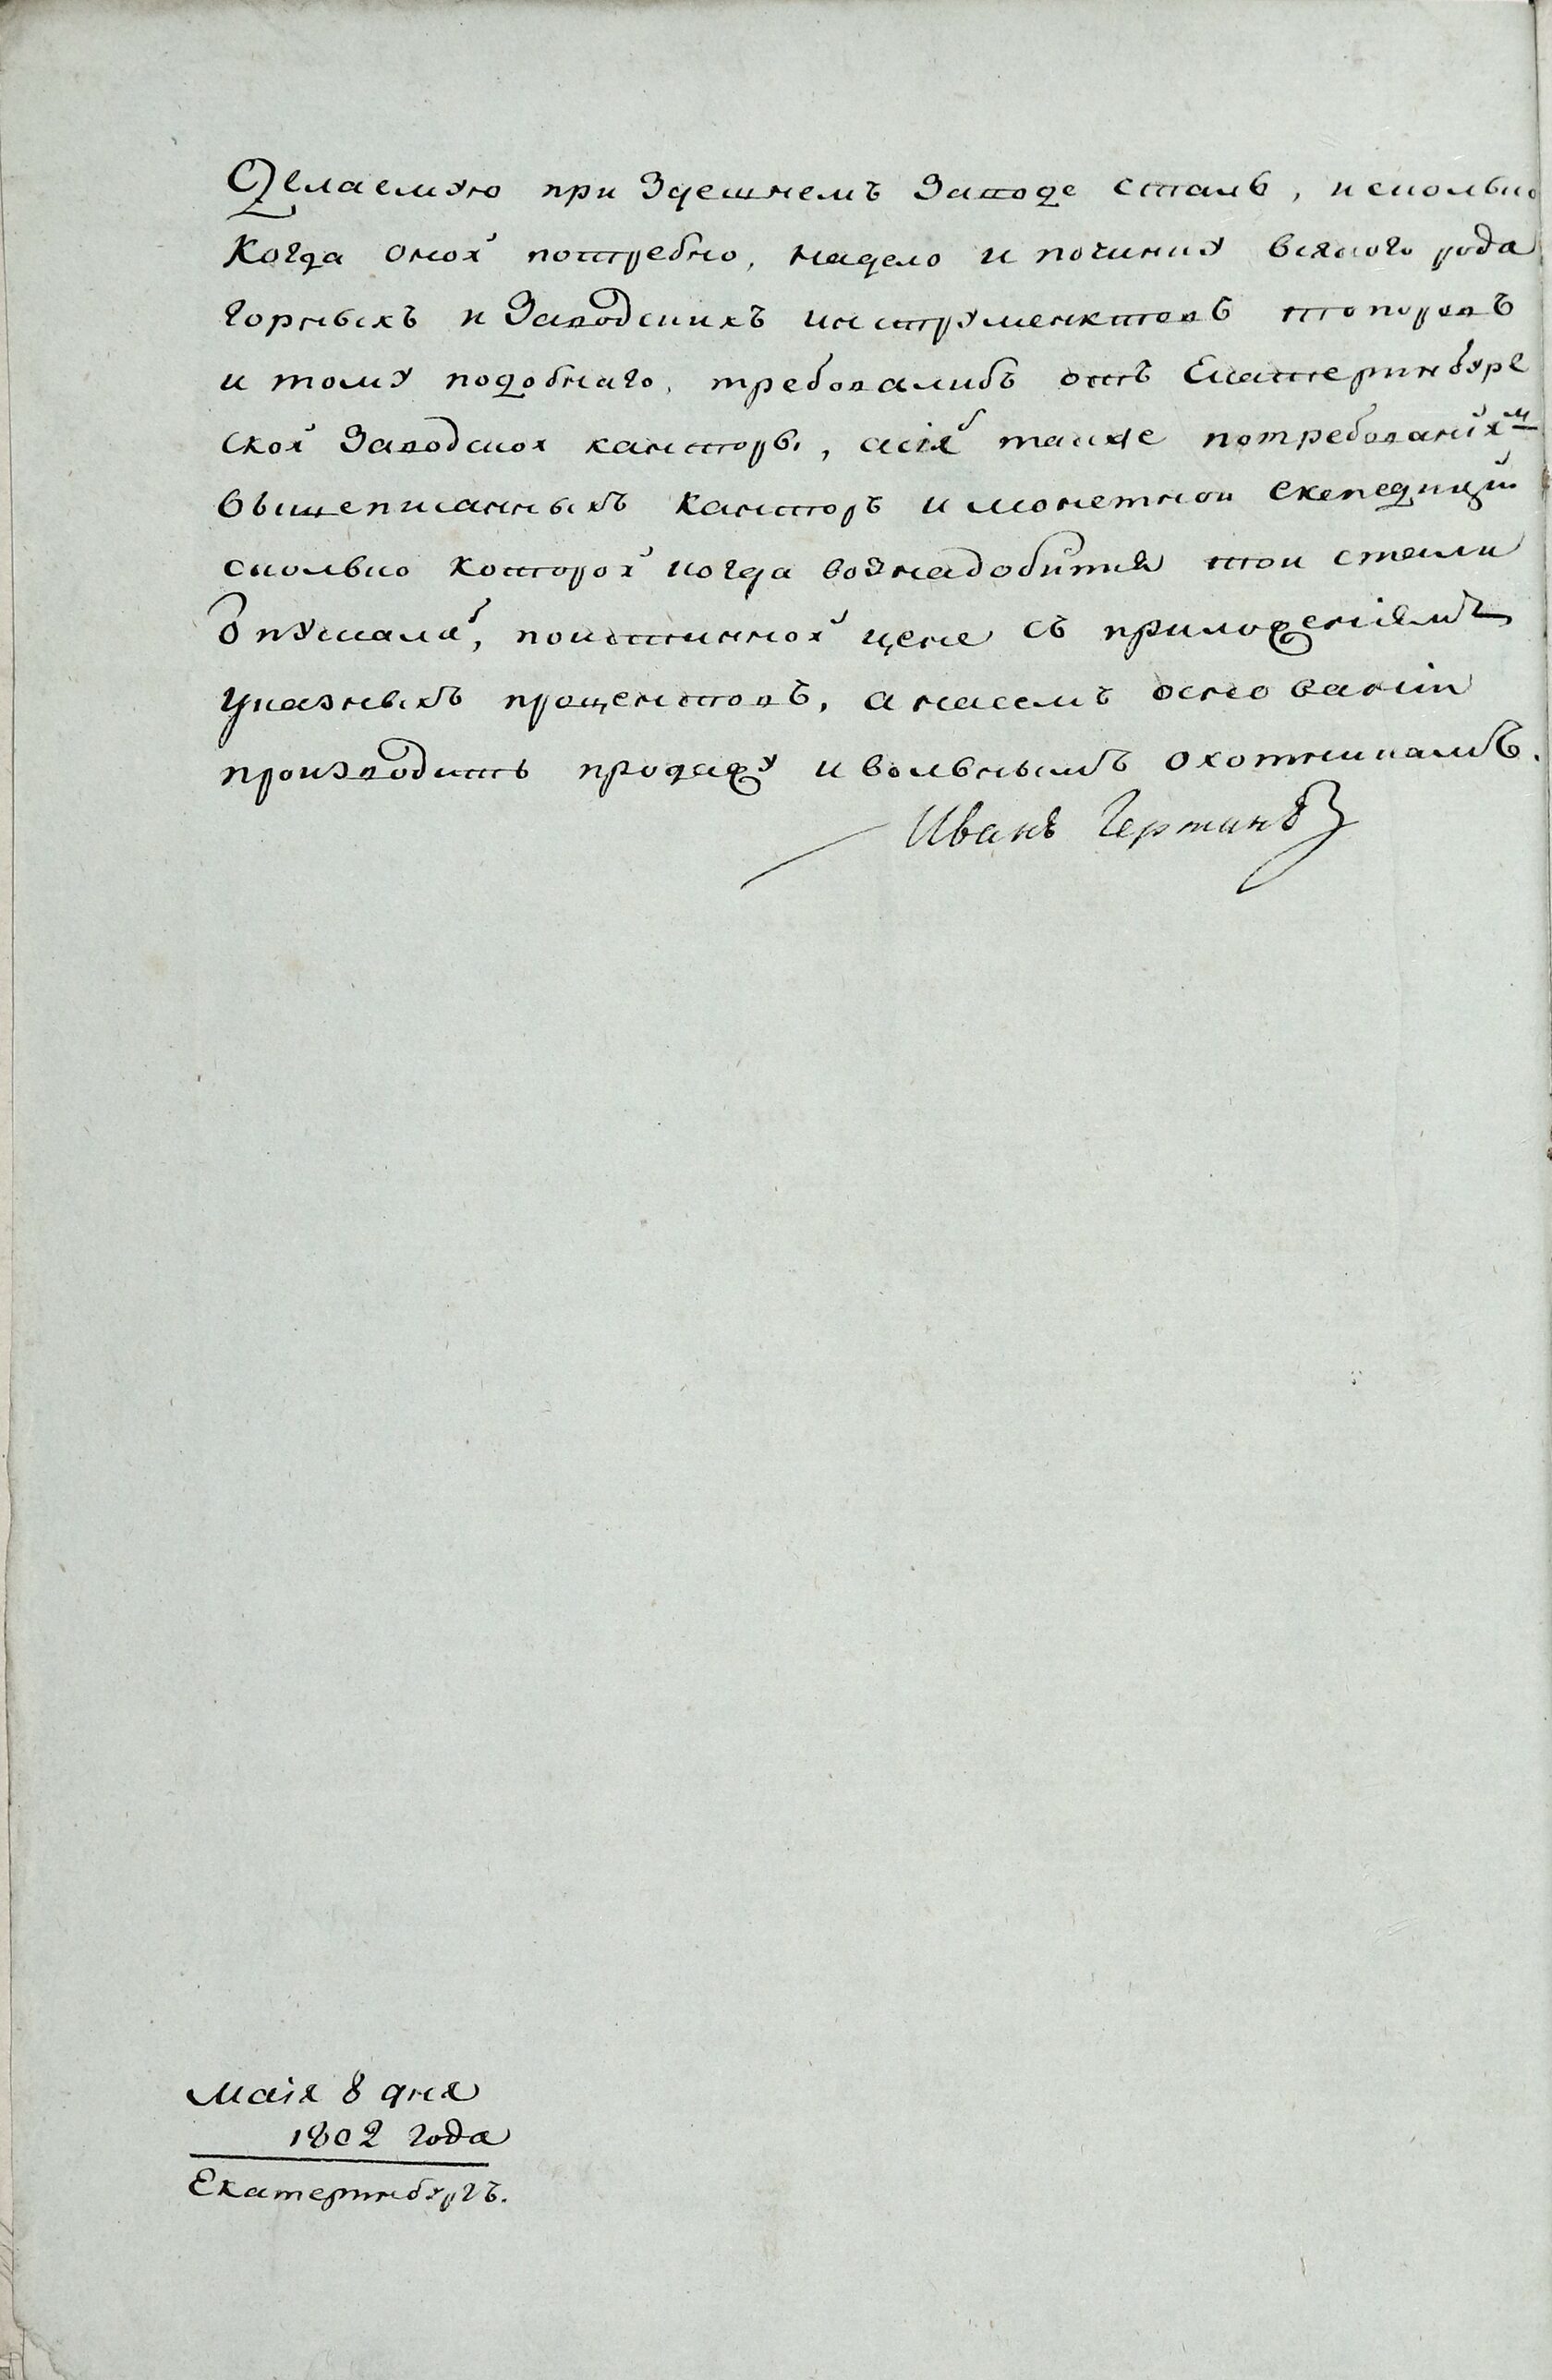 Делаемую при здешнемъ заводе сталь, исколько
когда оной потребно, надело и починку всякого рода
горныхъ и заводскихъ инструментовъ топоровъ
и тому подобнаго, требовалибъ отъ Екатеринбург
ской заводской канторы, асія также потребованія^м
вышеписанныхъ канторъ и монетной експедицїи
сколько которой когда вознадобится той стали
отпускала, поистинной цене съ приложеніямъ
указныхъ процентовъ, а насемъ основаніи
производить продажу и вольнымъ охотникамъ.
Иванъ Германъ
Маія 8 дня
1802 года
Екатеринбургъ.